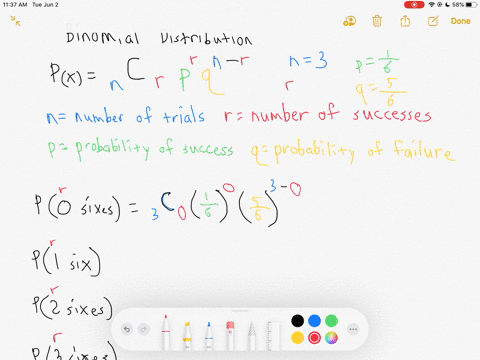 11:37 AM Tue Jun 2 58%
Done
Binomial Distribution
P(x) = nCr p^r q^n-r n = 3 p = 1/6
r q = 5/6
n = number of trials r = number of successes
p = probability of success q = probability of failure
r
P(0 sixes) = 3C0 (1/6)^0 (5/6)^3-0
r
P(1 six)
r
P(2 sixes)
r
P(3 sixes)